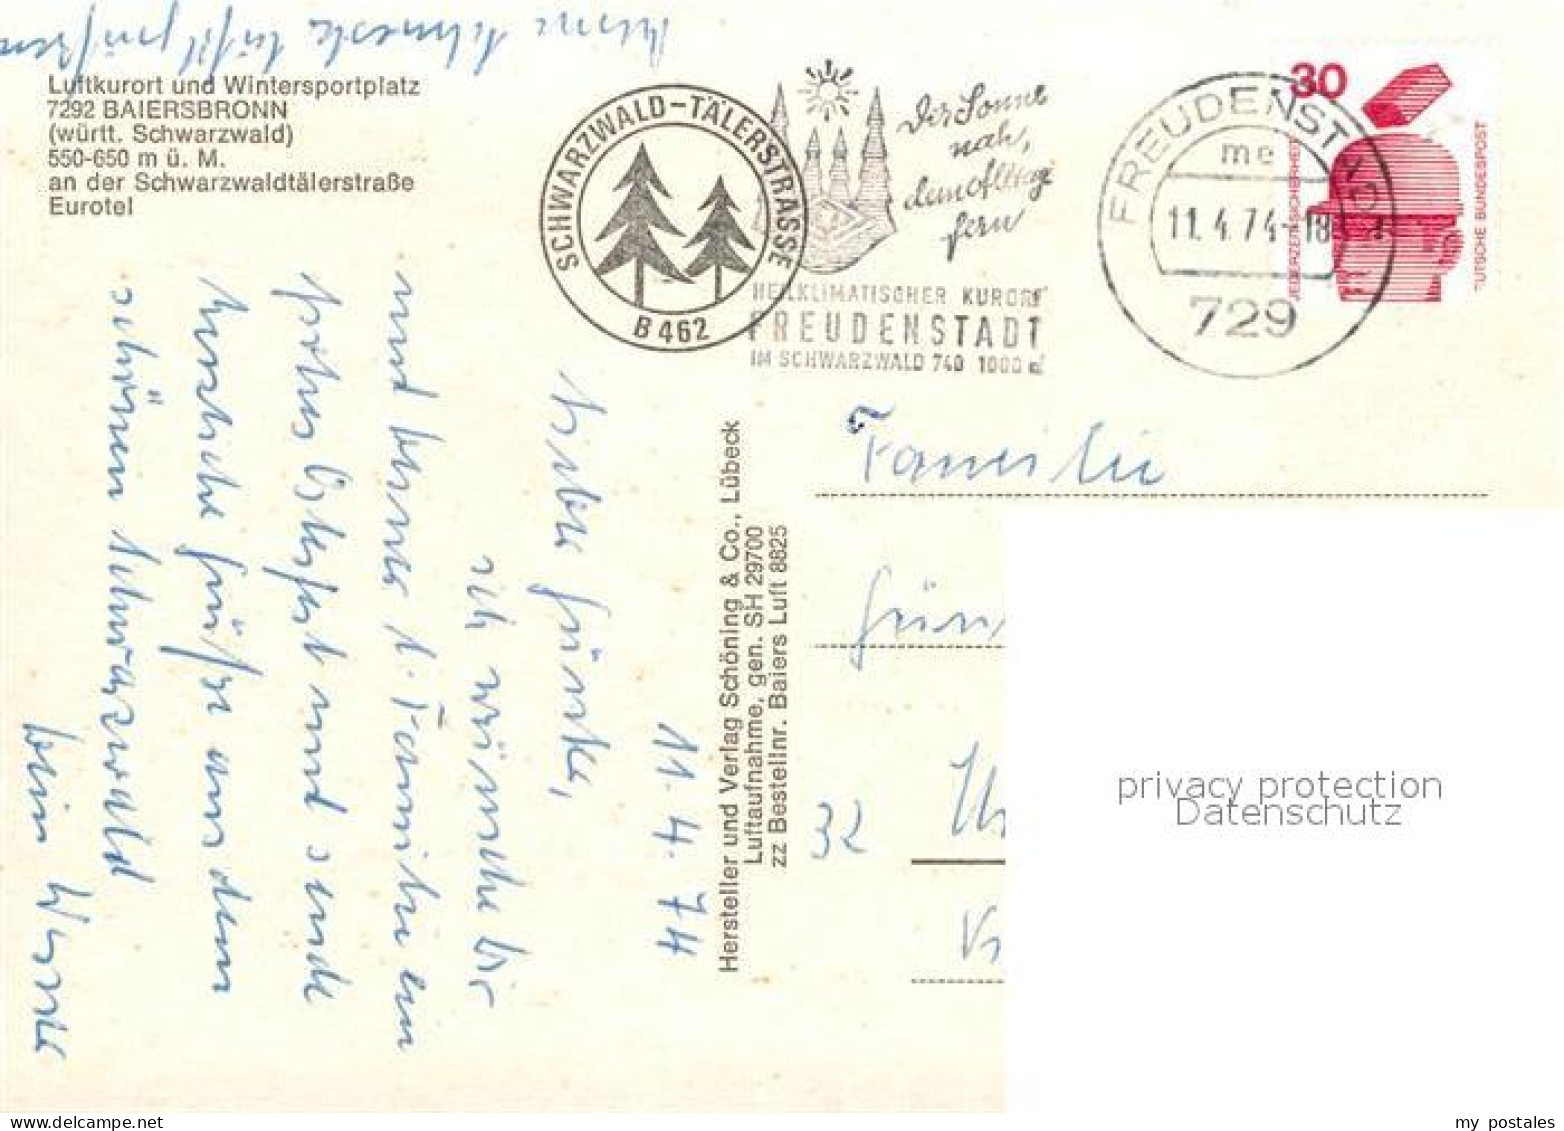 Luftkurort und Wintersportplatz
7292 BAIERSBRONN
(württ. Schwarzwald)
550-650 m ü. M.
an der Schwarzwaldtälerstraße
Eurotel
SCHWARZWALD-TÄLERSTRASSE
B 462
Der Sonne
nah,
dem Alltag
fern
HEILKLIMATISCHER KURORT
FREUDENSTADT
IM SCHWARZWALD 740 1000 m
FREUDENST
me
11.4.74-18
729
30
JEDERZEIT SICHERHEIT
TUTSCHE BUNDESPOST
11. 4. 74
Lieber Günter,
ich wünsche Dir
und Deiner l. Familie ein
frohes Osterfest und sende
herzliche Grüße aus dem
schönen Schwarzwald
Dein Werner
Meine Schwester läßt grüßen
Hersteller und Verlag Schöning & Co., Lübeck
Luftaufnahme, gen. SH 29700
zz Bestellnr. Baiers Luft 8825
Familie
Gün
32
privacy protection
Datenschutz
my postales